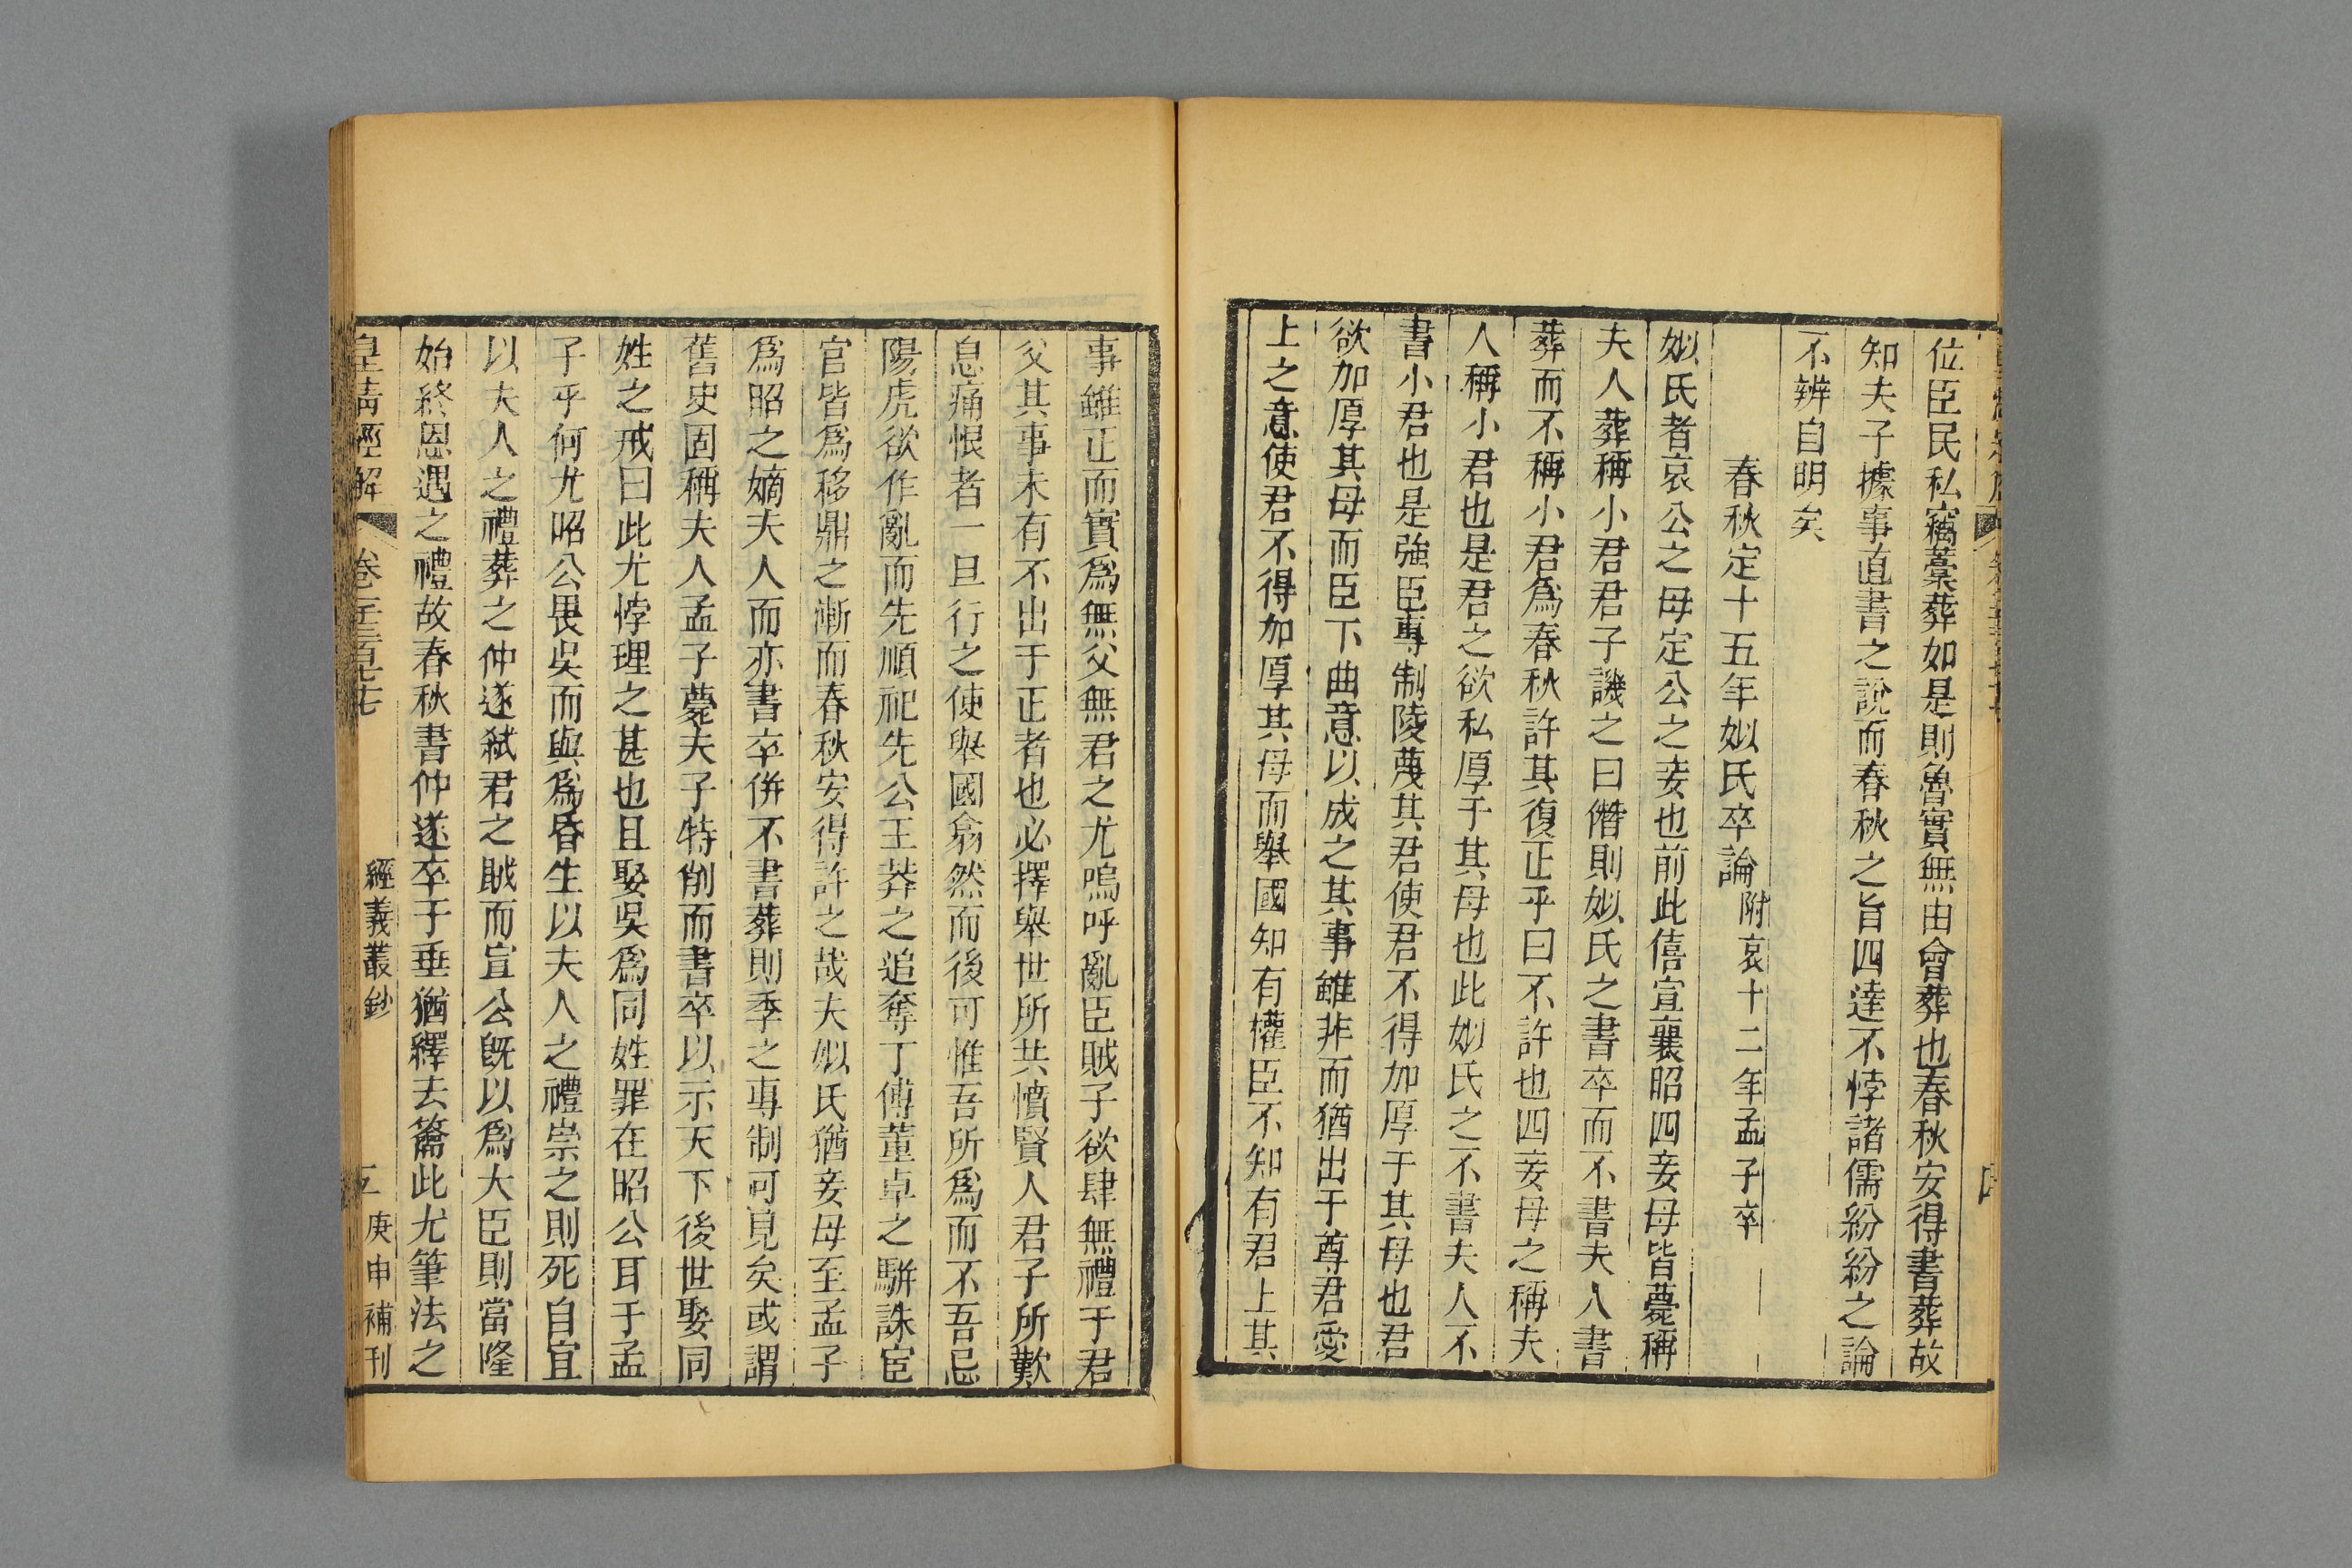 位臣民私竊藁葬如是則魯實無由會葬也春秋安得書葬故
知夫子據事直書之說而春秋之旨四達不悖諸儒紛紛之論
不辨自明矣
春秋定十五年姒氏卒論附哀十二年孟子卒
姒氏者哀公之母定公之妾也前此僖宣襄昭四妾母皆薨稱
夫人葬稱小君君子譏之曰僭則姒氏之書卒而不書夫人書
葬而不稱小君為春秋許其復正乎曰不許也四妾母之稱夫
人稱小君也是君之欲私厚于其母也此姒氏之不書夫人不
書小君也是強臣專制陵蔑其君使君不得加厚于其母也君
欲加厚其母而臣下曲意以成之其事雖非而猶出于尊君愛
上之意使君不得加厚其母而舉國知有權臣不知有君上其
事雖正而實爲無父無君之尤嗚呼亂臣賊子欲肆無禮于君
父其事未有不出于正者也必擇舉世所共憤賢人君子所歎
息痛恨者一旦行之使舉國翕然而後可惟吾所爲而不吾忌
陽虎欲作亂而先順祀先公王莽之追奪丁傅董卓之駢誅宦
官皆爲移鼎之漸而春秋安得許之哉夫姒氏猶妾母至孟子
爲昭之嫡夫人而亦書卒併不書葬則季之專制可見矣或謂
舊史固稱夫人孟子薨夫子特削而書卒以示天下後世娶同
姓之戒曰此尤悖理之甚也且娶吳爲同姓罪在昭公耳于孟
子乎何尤昭公畏吳而與爲昏生以夫人之禮崇之則死自宜
以夫人之禮葬之仲遂弒君之賊而宣公旣以爲大臣則當隆
始終恩遇之禮故春秋書仲遂卒于垂猶繹去籥此尤筆法之
皇清經解 卷一千三百八七 經義叢鈔 五 庚申補刊